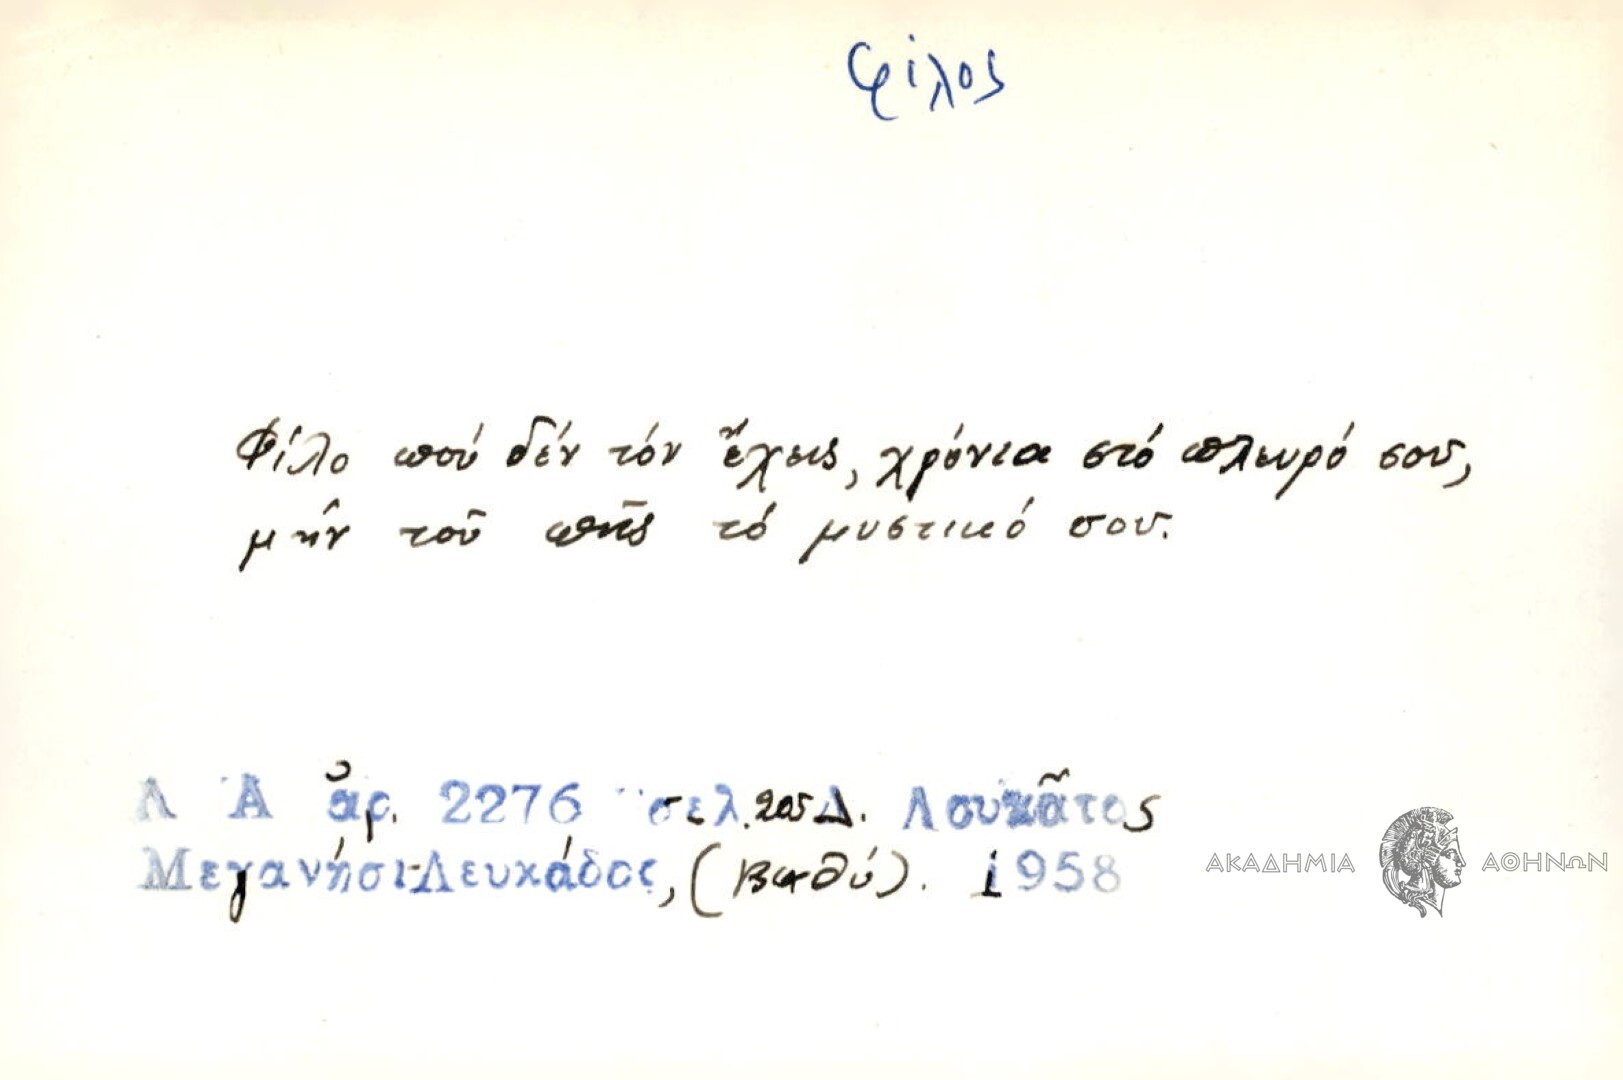 φίλος
Φίλο πού δέν τόν ἔχεις, χρόνια στό πλευρό σου,
μήν τοῦ πῆς τό μυστικό σου.
Λ Ἀ ἀρ. 2276 σελ. 205 Δ. Λουκᾶτος
Μεγανήσι-Λευκάδος, (Βαθύ). 1958
ΑΚΑΔΗΜΙΑ ΑΘΗΝΩΝ